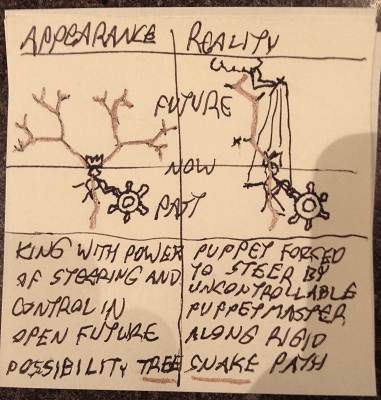 APPEARANCE
REALITY
FUTURE
NOW
PAST
KING WITH POWER
OF STEERING AND
CONTROL IN
OPEN FUTURE
POSSIBILITY TREE
PUPPET FORCED
TO STEER BY
UNCONTROLLABLE
PUPPETMASTER
ALONG RIGID
SNAKE PATH